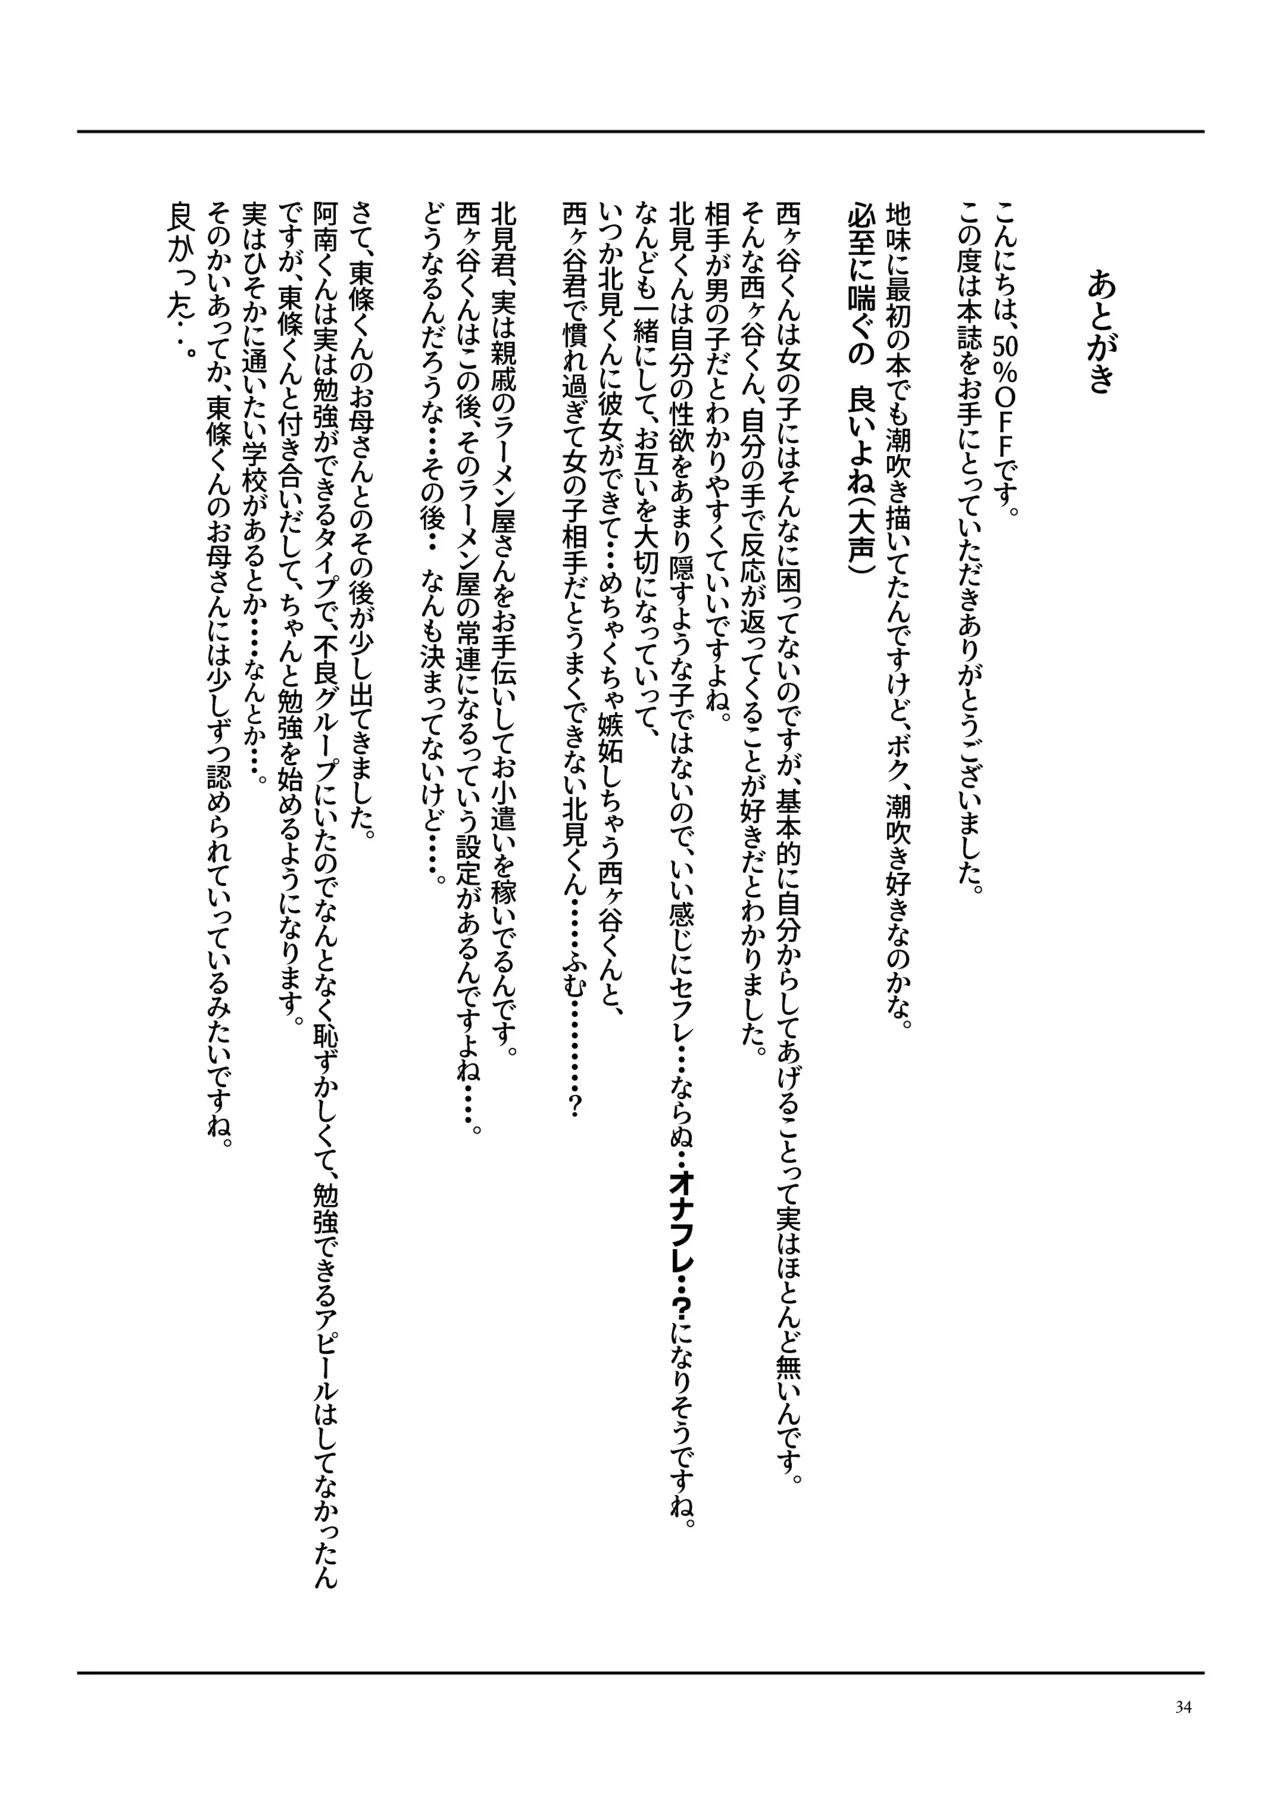 あとがき
こんにちは、50%OFFです。
この度は本誌をお手にとっていただきありがとうございました。
地味に最初の本でも潮吹き描いてたんですけど、ボク、潮吹き好きなのかな。
必至に喘ぐの 良いよね(大声)
西ヶ谷くんは女の子にはそんなに困ってないのですが、基本的に自分からしてあげることって実はほとんど無いんです。
そんな西ヶ谷くん、自分の手で反応が返ってくることが好きだとわかりました。
相手が男の子だとわかりやすくていいですよね。
北見くんは自分の性欲をあまり隠すような子ではないので、いい感じにセフレ…ならぬ…オナフレ…?になりそうですね。
なんども一緒にして、お互いを大切になっていって、
いつか北見くんに彼女ができて…めちゃくちゃ嫉妬しちゃう西ヶ谷くんと、
西ヶ谷君で慣れ過ぎて女の子相手だとうまくできない北見くん……ふむ…………?
北見君、実は親戚のラーメン屋さんをお手伝いしてお小遣いを稼いでるんです。
西ヶ谷くんはこの後、そのラーメン屋の常連になるっていう設定があるんですよね……。
どうなるんだろうな…その後… なんも決まってないけど……。
さて、東條くんのお母さんとのその後が少し出てきました。
阿南くんは実は勉強ができるタイプで、不良グループにいたのでなんとなく恥ずかしくて、勉強できるアピールはしてなかったん
ですが、東條くんと付き合いだして、ちゃんと勉強を始めるようになります。
実はひそかに通いたい学校があるとか……なんとか…。
そのかいあってか、東條くんのお母さんには少しずつ認められていっているみたいですね。
良かった…。
34